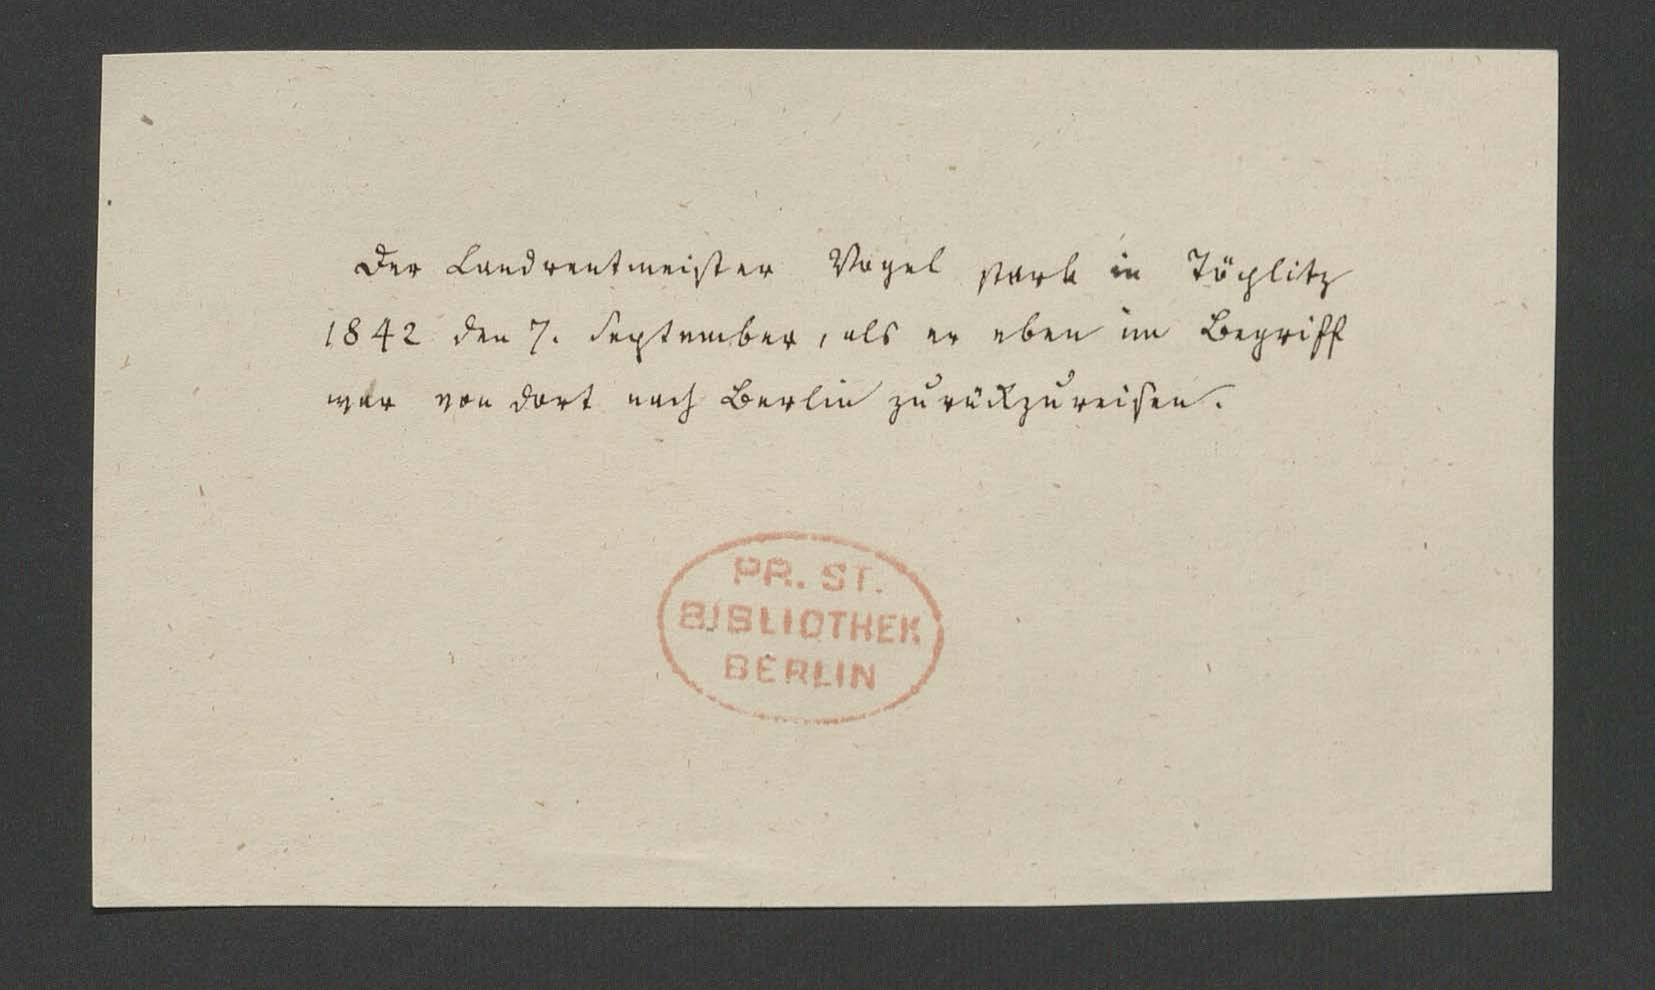 Der Landrentmeister Vogel starb in Töplitz
1842 den 7. September, als er eben im Begriff
war von dort nach Berlin zurückzureisen.
PR. ST.
BIBLIOTHEK
BERLIN